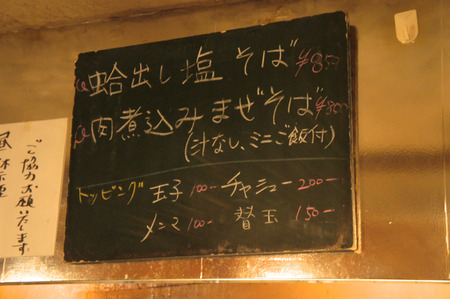 蛤出し塩そば ¥850
肉煮込みまぜそば ¥800
(汁なし、ミニご飯付)
トッピング 玉子 100- チャシュー 200-
メンマ 100- 替玉 150-
ご協力お願いします